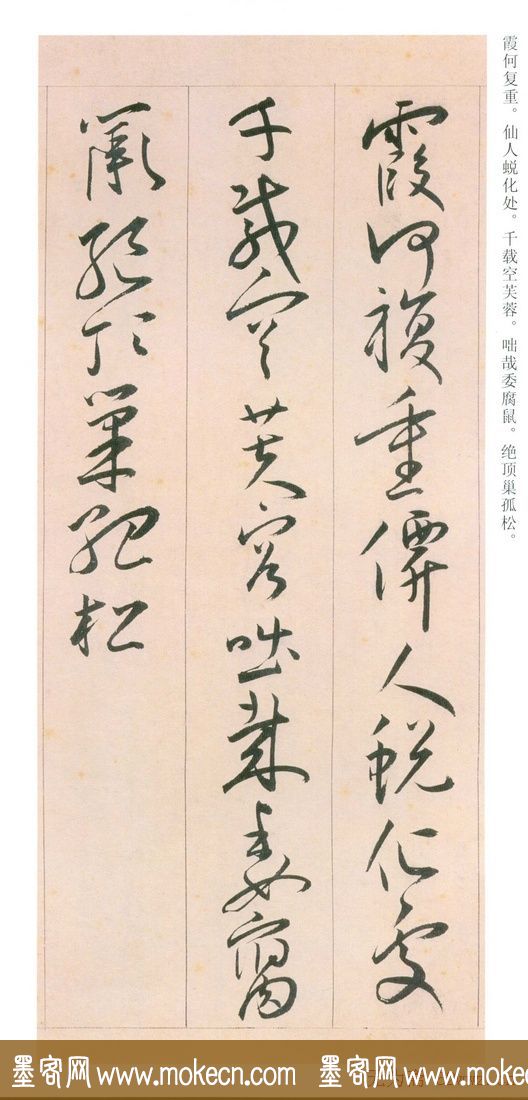 霞何复重。仙人蜕化处。千载空芙蓉。咄哉委腐鼠。绝顶巢孤松。
霞何複重僊人蜕化處
千載空芙容咄哉委腐
鼠絶頂巢孤松
墨客网 www.mokecn.com 墨客网 www.mokecn.com